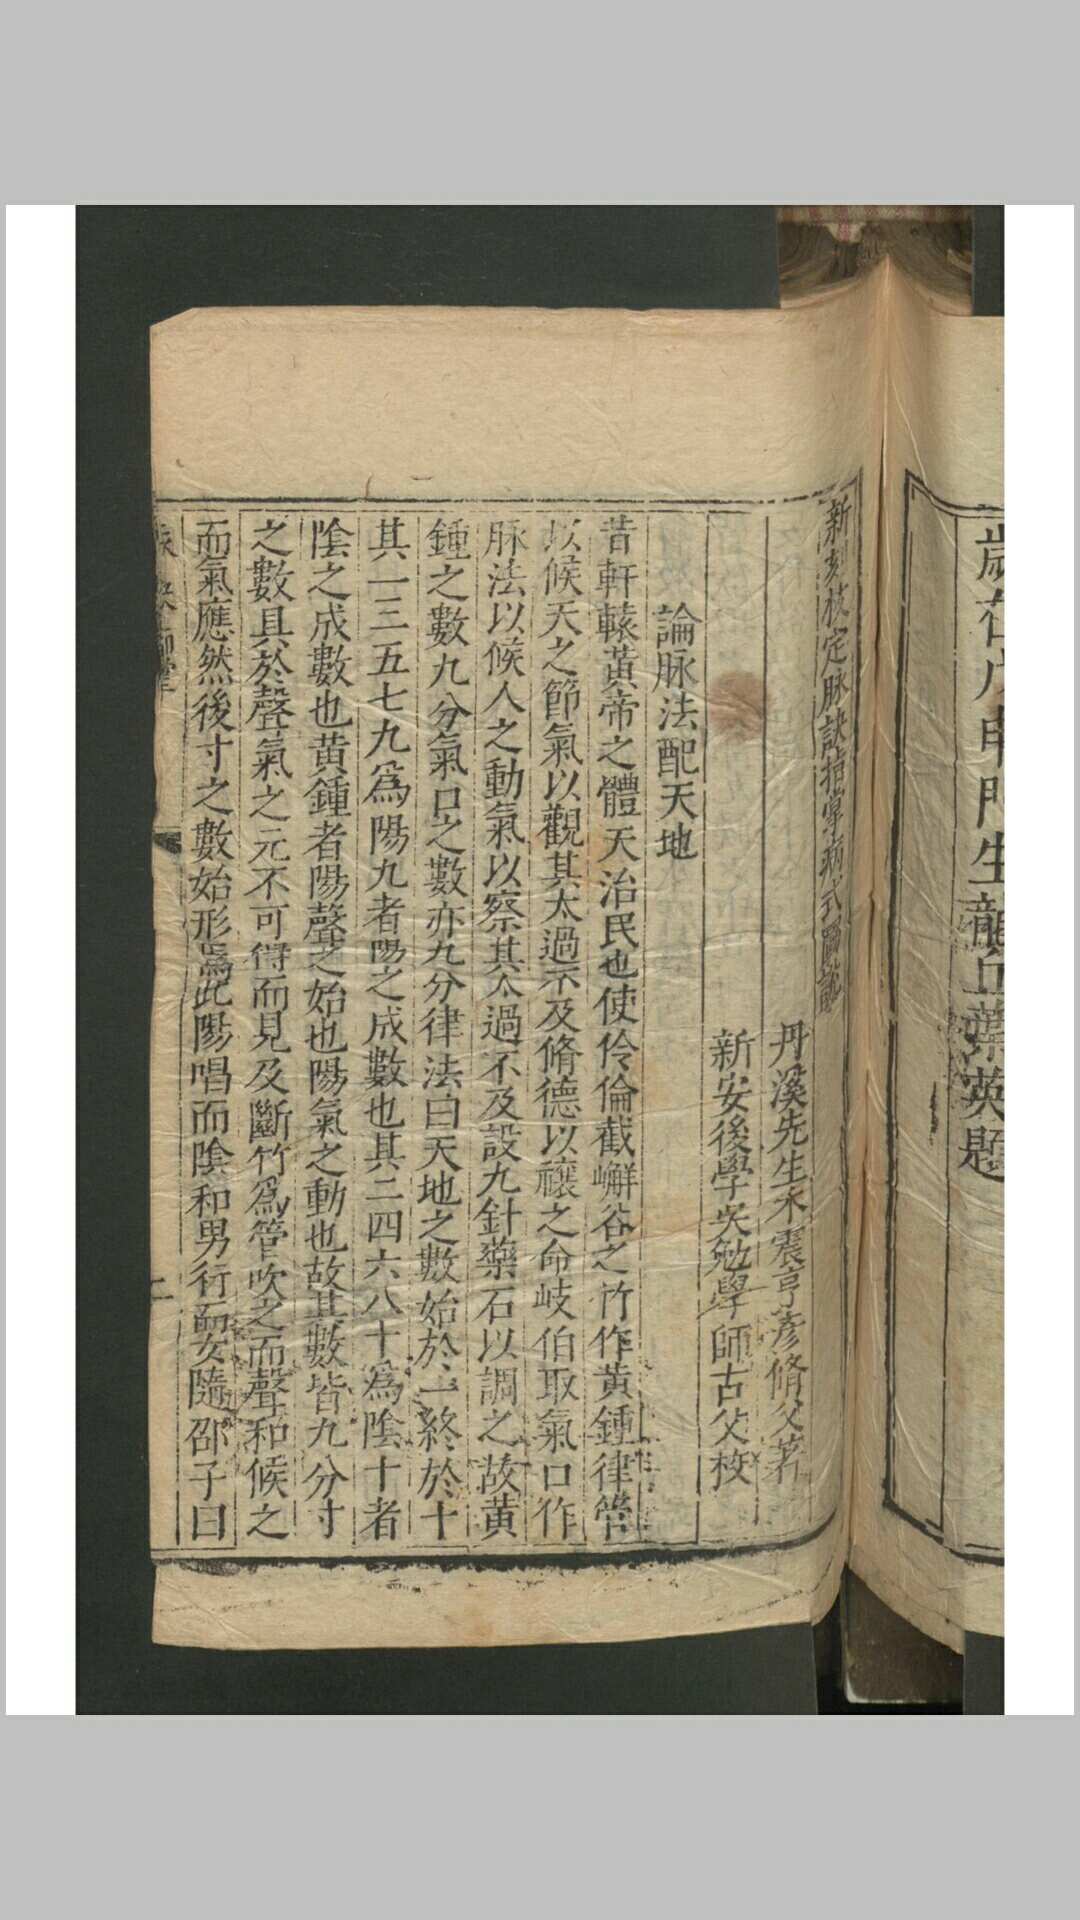 歲在戊申門生龍丘葉英題
新刻校定脉訣指掌病式圖說
丹溪先生朱震亨彥脩父著
新安後學吳勉學師古父校
論脉法配天地
昔軒轅黃帝之體天治民也使伶倫截嶰谷之竹作黃鍾律管
以候天之節氣以觀其太過不及脩德以禳之命岐伯取氣口作
脉法以候人之動氣以察其太過不及設九針藥石以調之故黃
鍾之數九分氣口之數亦九分律法曰天地之數始於一終於十
其一三五七九為陽九者陽之成數也其二四六八十為陰十者
陰之成數也黃鍾者陽聲之始也陽氣之動也故其數皆九分寸
之數具於聲氣之元不可得而見及斷竹為管吹之而聲和候之
而氣應然後寸之數始形焉此陽唱而陰和男行而女隨邵子曰